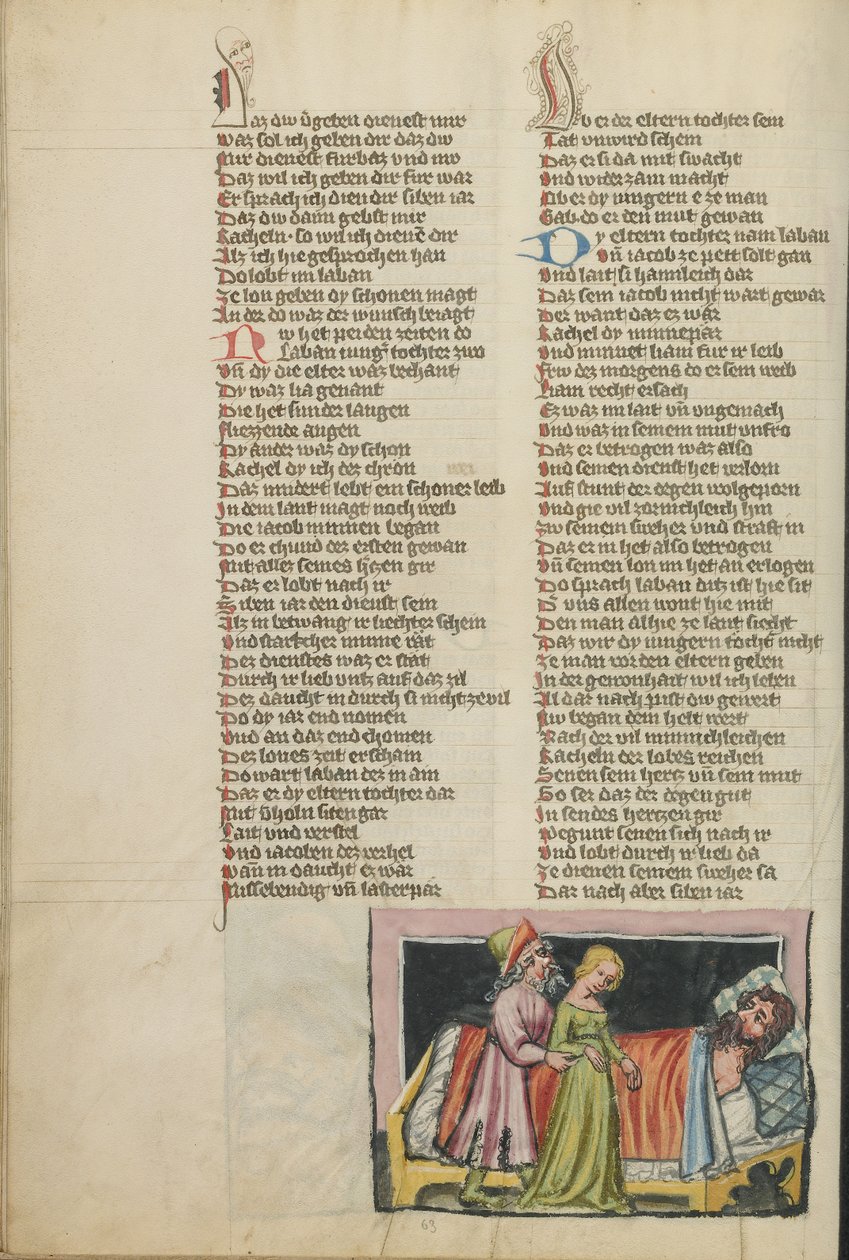 Daz dw vgeben dienest mir
Waz sol ich geben dir daz dw
Mir dienest furbaz vnd nw
Daz wil ich geben dir fur war
Er sprach ich dien dir siben iar
Daz dw dann gebst mir
Racheln · so wil ich dienē dir
Alz ich hie gesprochen han
Do lobt im laban
Ze lon geben dy schonen magt
An der do waz der wunsch betagt
Nw het pei den zeiten do
Laban iung tochter zwo
Vn̄ dy die elter waz bechant
Dy waz lia genant
Die het sunder laugen
Fliezzende augen
Dy ander waz dy schon
Rachel dy ich des chron
Daz nindert lebt ein schoner leib
In dem lant magt noch weib
Die iacob minnen began
Do er chund der ersten gewan
Mit aller seines hzen gir
Daz er lobt nach ir
Siben iar den dienst sein
Alz in betwang ir liechter schein
Vnd starcher minne rat
Dez dienstes waz er stat
Durch ir lieb vntz auf daz zil
Dez daucht in durch si nicht ze vil
Do dy iar end nomen
Vnd an daz end chomen
Dez lones zeit erschain
Do wart laban dez in ain
Daz er dy eltern tochter dar
Mit vholn siten gar
Lait vnd verstel
Vnd iacoben dez verhel
Wan in daucht ez war
Missebendig vn̄ lasterpar
Ob er der eltern tochter sein
Tat vnwird schein
Daz er si da mit swacht
Vnd widerzam macht
Ob er dy iungern e ze man
Gab · do er den mut gewan
Dy eltern tochter nam laban
Vn̄ iacob ze pett solt gan
Vnd lait si haimleich dar
Daz sein iacob nicht wart gewar
Der want daz ez war
Rachel dy minnepar
Vnd minnet liam fur ir leib
Frw dez morgens do er sein weib
Liam recht ersach
Ez waz im lait vn̄ vngemach
Vnd waz in seinem mut vnfro
Daz er betrogen waz also
Vnd seinen dienst het verlorn
Auf stunt der degen wolgeporn
Vnd gie vil zornichleich hin
Zw seinem sweher vnd straft in
Daz er in het also betrogen
Vn̄ seinen lon im het an erlogen
Do sprach laban ditz ist hie sit
Der vns allen wont hie mit
Den man alhie ze lant siecht
Daz wir dy iungern tocht nicht
Ze man vor den eltern geben
In der gewonhait wil ich leben
All dar nach pist dw gewert
Nw began dem helt wert
Nach der vil minnichleichen
Racheln der lobes reichen
Senen sein hertz vn̄ sein mut
So ser daz der degen gut
In sendes hertzen gir
Wegunt senen sich nach ir
Vnd lobt durch ir lieb da
Ze dienen seinem sweher sa
Dar nach aber siben iar
63